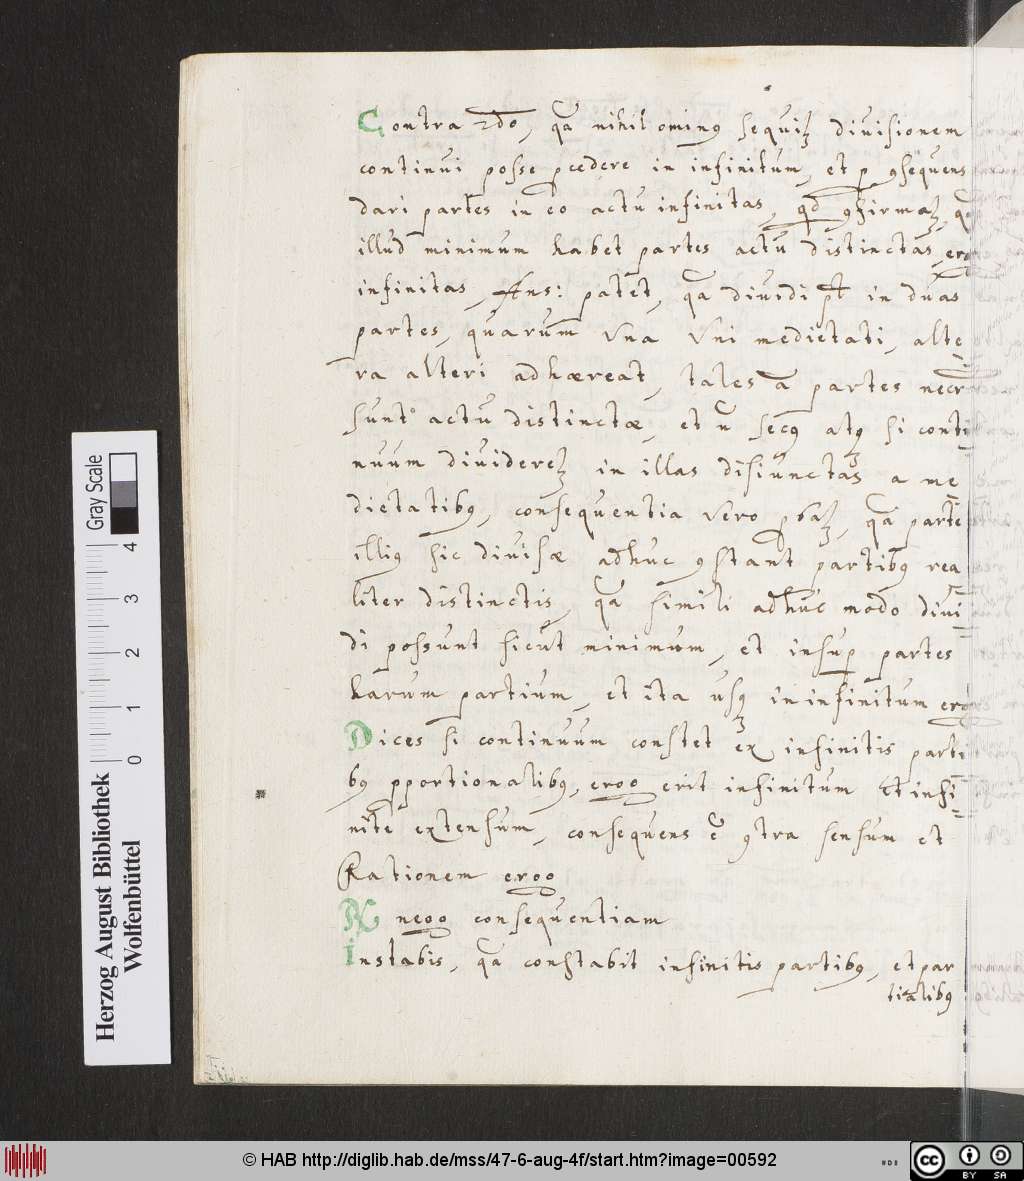 Contra 2do, qa nihil ominꝰ sequiꝫ diuisionem
continui posse pcedere in infinitum, et p ꝯsequens
dari partes in eo actu infinitas, qd ꝯfirmaꝫ, qa
illud minimum habet partes actu distinctas, ergo
infinitas, Ans: patet, qa diuidi pt in duas
partes, quarum Vna Vni medietati, alte
ra alteri adhæreat, tales a partes necr
sunt actu distinctæ, et n secꝰ atqꝫ si conti
nuum diuidereꝫ in illas disiunctas a me
dietatibꝰ, consequentia Vero pbaꝫ, qa parte
illiꝰ sic diuisæ adhuc ꝯstant partibꝰ rea
liter distinctis, qa simili adhuc modo diui
di possunt sicut minimum, et insup partes
harum partium, et ita usqꝫ in infinitum ergo
Dices si continuum constet ex infinitis parti
bꝰ pportionalibꝰ, ergo erit infinitum et infi
nite extensum, consequens ē ꝯtra sensum et
Rationem ergo
R nego consequentiam
Instabis, qa constabit infinitis partibꝰ, et par
tialibꝰ
Herzog August Bibliothek
Wolfenbüttel
0 1 2 3 4
Gray Scale
© HAB http://diglib.hab.de/mss/47-6-aug-4f/start.htm?image=00592
cc BY SA